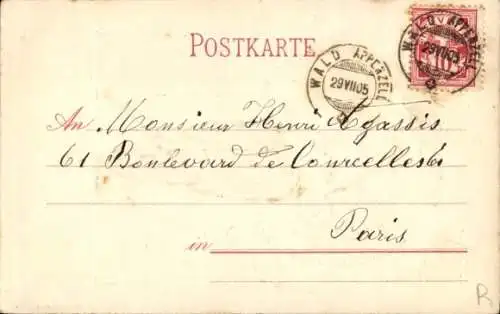 POSTKARTE
WALD APPENZELL
29 VII 05
WALD APPENZELL
29 VII 05
10
An Monsieur Henri Agassis
61 Boulevard de Courcelles 61
in Paris
R